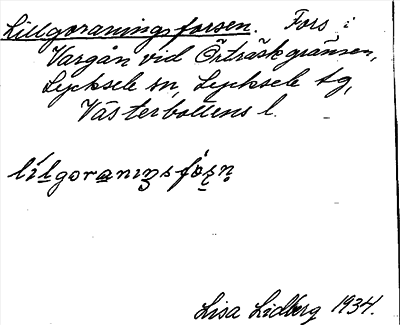 Lillgoraningsforsen. Fors i
Vargån vid Örträskgränsen,
Lycksele sn, Lycksele tg,
Västerbottens l.
Lisa Lidberg 1934.